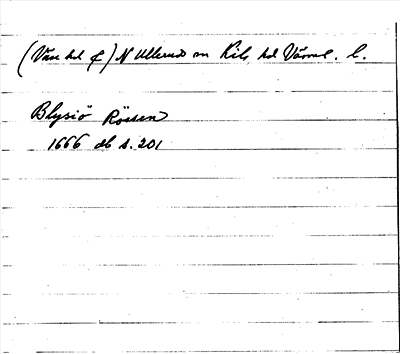 (Väse hd &) N Ullerud sn Kils hd Värml. l.
Blysiö Rössen
1666 db s. 201